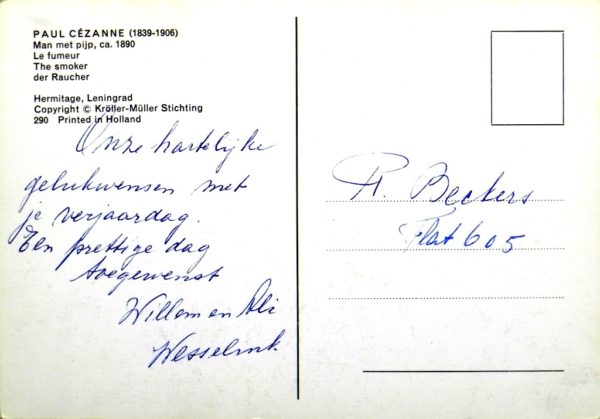 PAUL CÉZANNE (1839-1906)
Man met pijp, ca. 1890
Le fumeur
The smoker
der Raucher
Hermitage, Leningrad
Copyright © Kröller-Müller Stichting
290 Printed in Holland
Onze hartelijke
gelukwensen met
je verjaardag.
Een prettige dag
toegewenst
Willem en
Wesselink
Beckers
Flat 605